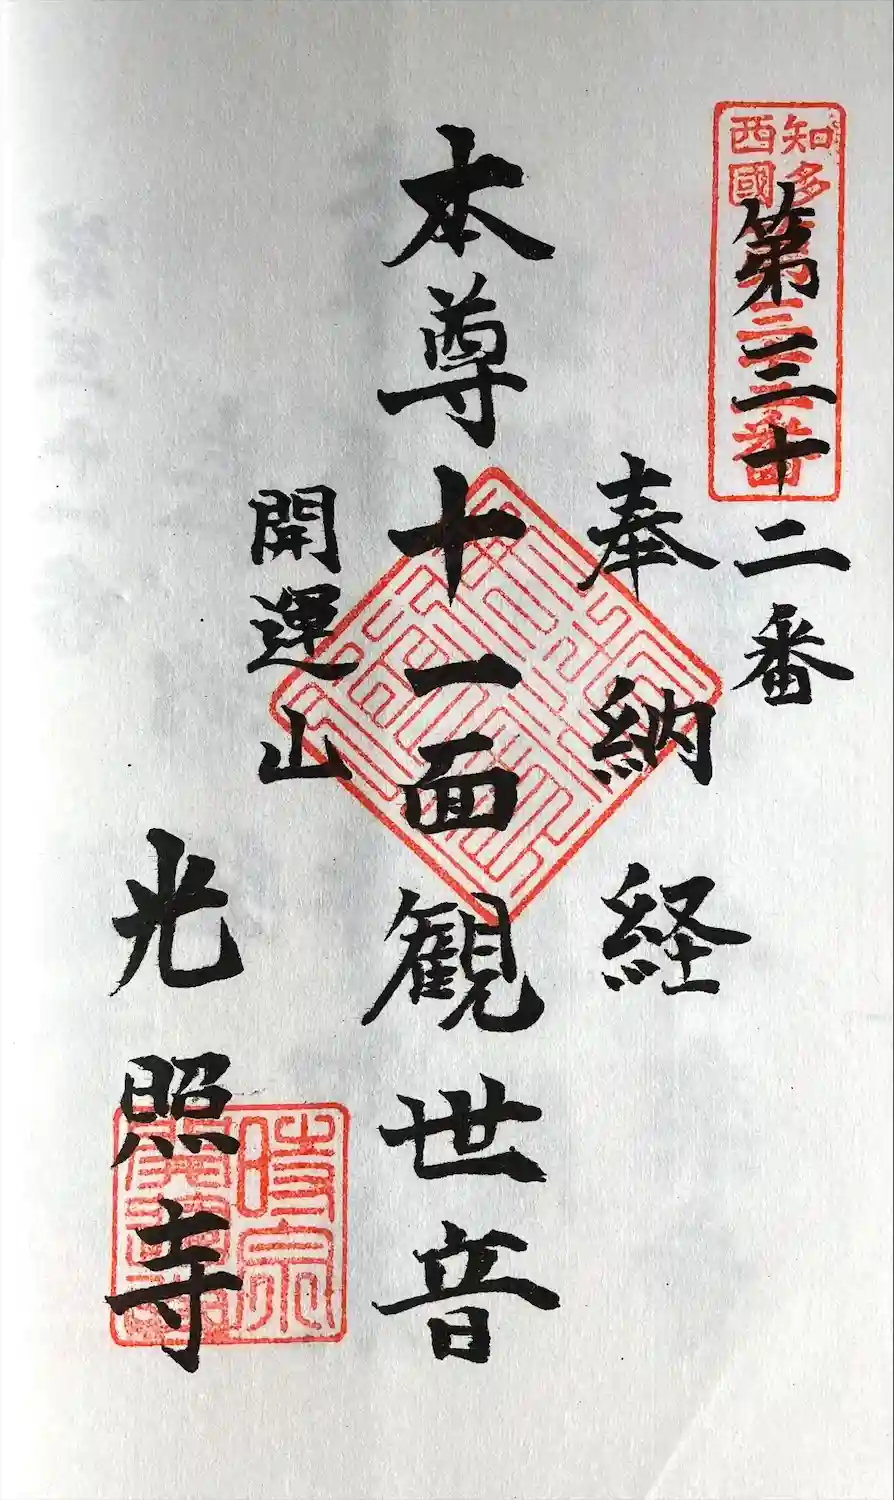 知多
西國
第三十二番
奉納経
本尊十一面觀世音
開運山
光照寺
時宗